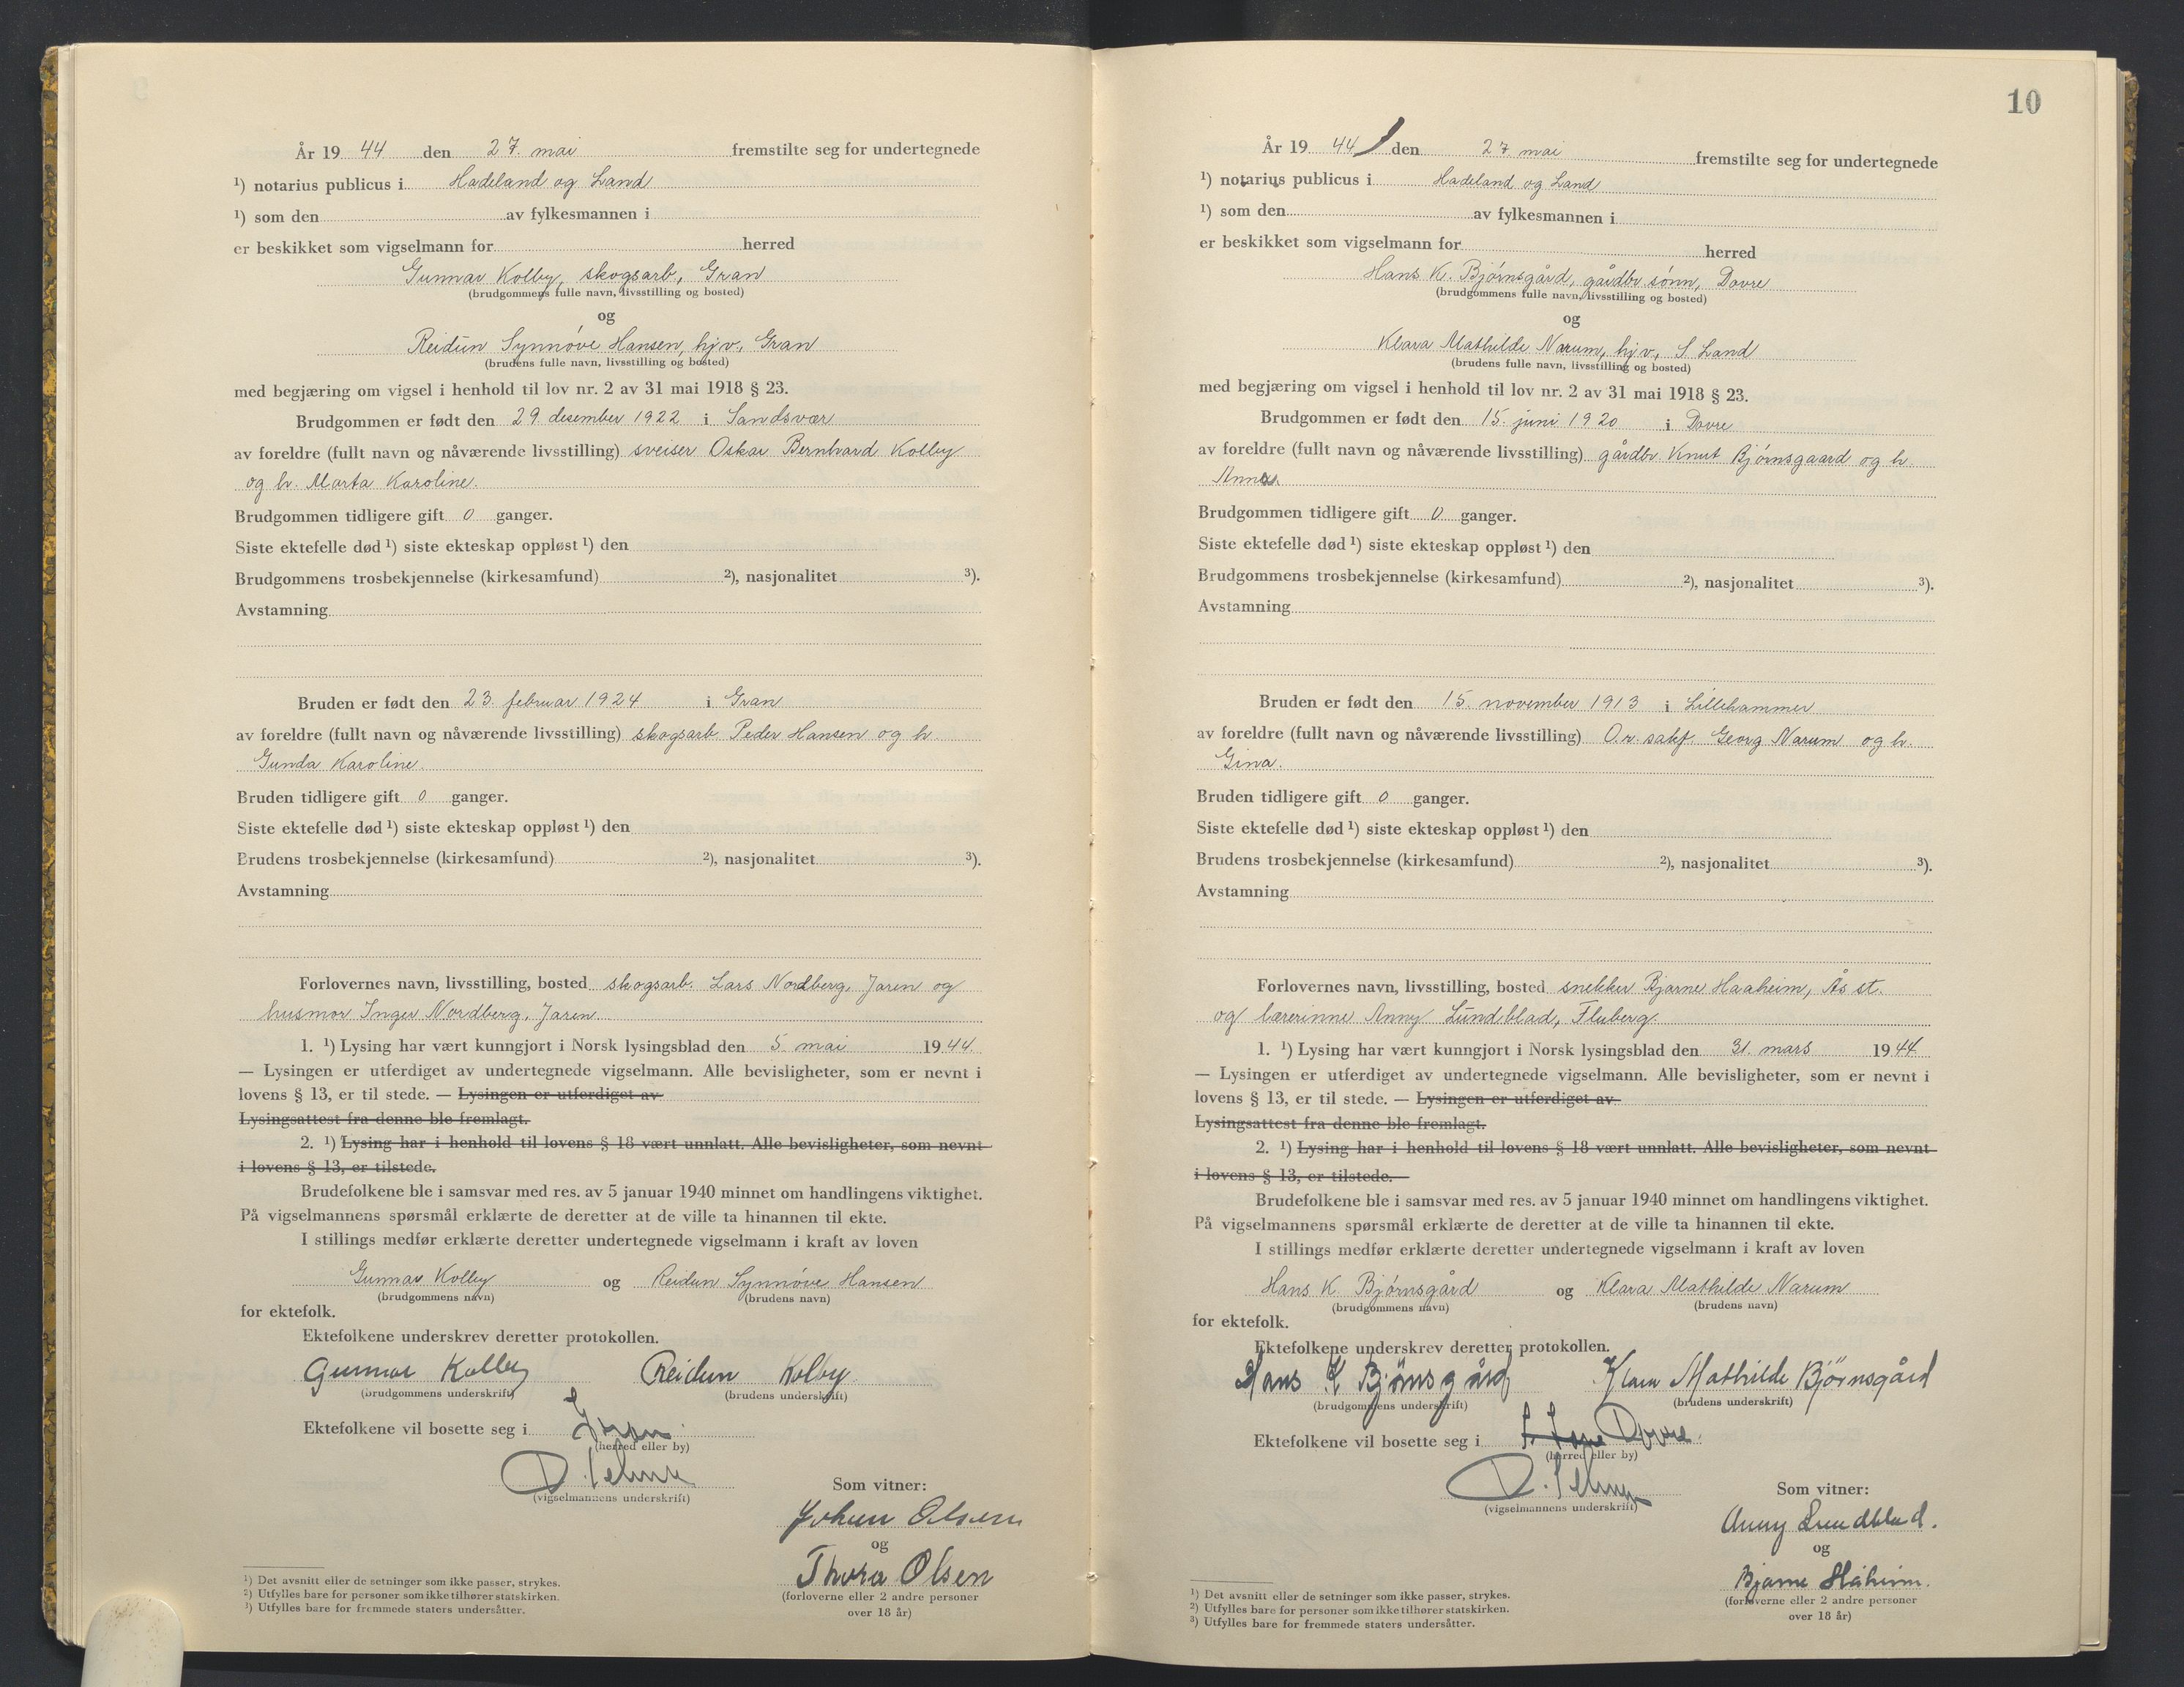 År 19 44 den 27. mai fremstilte seg for undertegnede
¹) notarius publicus i Hadeland og Land
¹) som den av fylkesmannen i
er beskikket som vigselmann for herred
Gunnar Kolby, skogsarb, Gran
(brudgommens fulle navn, livsstilling og bosted)
og
Reidun Synnöve Hansen, hjv., Gran
(brudens fulle navn, livsstilling og bosted)
med begjæring om vigsel i henhold til lov nr. 2 av 31 mai 1918 § 23.
Brudgommen er født den 29. desember 1922 i Sandsvær
av foreldre (fullt navn og nåværende livsstilling) sveiser Oskar Bernhard Kolby
og h. Marta Karoline.
Brudgommen tidligere gift 0 ganger.
Siste ektefelle død ¹) siste ekteskap oppløst ¹) den
Brudgommens trosbekjennelse (kirkesamfund) ²), nasjonalitet ³).
Avstamning
Bruden er født den 23. februar 1924 i Gran
av foreldre (fullt navn og nåværende livsstilling) skogsarb. Peder Hansen og h
Gunda Karoline.
Bruden tidligere gift 0 ganger.
Siste ektefelle død ¹) siste ekteskap oppløst ¹) den
Brudens trosbekjennelse (kirkesamfund) ²), nasjonalitet ³).
Avstamning
Forlovernes navn, livsstilling, bosted skogsarb. Lars Nordberg, Jaren og
husmor Inger Nordberg, Jaren
1. ¹) Lysing har vært kunngjort i Norsk lysingsblad den 5. mai 1944.
— Lysingen er utferdiget av undertegnede vigselmann. Alle bevisligheter, som er nevnt i
lovens § 13, er til stede. — Lysingen er utferdiget av
Lysingsattest fra denne ble fremlagt.
2. ¹) Lysing har i henhold til lovens § 18 vært unnlatt. Alle bevisligheter, som nevnt
i lovens § 13, er tilstede.
Brudefolkene ble i samsvar med res. av 5 januar 1940 minnet om handlingens viktighet.
På vigselmannens spørsmål erklærte de deretter at de ville ta hinannen til ekte.
I stillings medfør erklærte deretter undertegnede vigselmann i kraft av loven
Gunnar Kolby og Reidun Synnöve Hansen
(brudgommens navn) (brudens navn)
for ektefolk.
Ektefolkene underskrev deretter protokollen.
Gunnar Kolby Reidun Kolby.
(brudgommens underskrift) (brudens underskrift)
Ektefolkene vil bosette seg i Gran
(herred eller by)
(vigselmannens underskrift)
Som vitner:
Johan Olsen
og
Thora Olsen
(forloverne eller 2 andre personer
over 18 år)
¹) Det avsnitt eller de setninger som ikke passer, strykes.
²) Utfylles bare for personer som ikke tilhører statskirken.
³) Utfylles bare for fremmede staters undersåtter.
10
År 19 44 den 27 mai fremstilte seg for undertegnede
¹) notarius publicus i Hadeland og Land
¹) som den av fylkesmannen i
er beskikket som vigselmann for herred
Hans K. Björnsgård, gårdbr sönn, Dovre
(brudgommens fulle navn, livsstilling og bosted)
og
Klara Mathilde Narum, hjv., S Land
(brudens fulle navn, livsstilling og bosted)
med begjæring om vigsel i henhold til lov nr. 2 av 31 mai 1918 § 23.
Brudgommen er født den 15. juni 1920 i Dovre
av foreldre (fullt navn og nåværende livsstilling) gårdbr. Knut Björnsgaard og h.
Anna
Brudgommen tidligere gift 0 ganger.
Siste ektefelle død ¹) siste ekteskap oppløst ¹) den
Brudgommens trosbekjennelse (kirkesamfund) ²), nasjonalitet ³).
Avstamning
Bruden er født den 15. november 1913 i Lillehammer
av foreldre (fullt navn og nåværende livsstilling) O.r. sakf. Georg Narum og h.
Gina.
Bruden tidligere gift 0 ganger.
Siste ektefelle død ¹) siste ekteskap oppløst ¹) den
Brudens trosbekjennelse (kirkesamfund) ²), nasjonalitet ³).
Avstamning
Forlovernes navn, livsstilling, bosted snekker Bjarne Haaheim, Ås st.
og lærerinne Anny Lundblad, Fluberg.
1. ¹) Lysing har vært kunngjort i Norsk lysingsblad den 31. mars 1944
— Lysingen er utferdiget av undertegnede vigselmann. Alle bevisligheter, som er nevnt i
lovens § 13, er til stede. — Lysingen er utferdiget av
Lysingsattest fra denne ble fremlagt.
2. ¹) Lysing har i henhold til lovens § 18 vært unnlatt. Alle bevisligheter, som nevnt
i lovens § 13, er tilstede.
Brudefolkene ble i samsvar med res. av 5 januar 1940 minnet om handlingens viktighet.
På vigselmannens spørsmål erklærte de deretter at de ville ta hinannen til ekte.
I stillings medfør erklærte deretter undertegnede vigselmann i kraft av loven
Hans K. Björnsgård og Klara Mathilde Narum
(brudgommens navn) (brudens navn)
for ektefolk.
Ektefolkene underskrev deretter protokollen.
Hans K Björnsgård Klara Mathilde Björnsgård
(brudgommens underskrift) (brudens underskrift)
Ektefolkene vil bosette seg i Dovre.
(herred eller by)
(vigselmannens underskrift)
Som vitner:
Anny Lundblad.
og
Bjarne Håheim.
(forloverne eller 2 andre personer
over 18 år)
¹) Det avsnitt eller de setninger som ikke passer, strykes.
²) Utfylles bare for personer som ikke tilhører statskirken.
³) Utfylles bare for fremmede staters undersåtter.